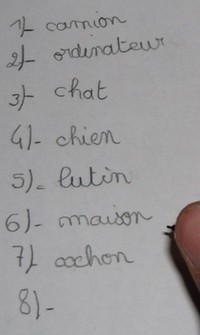 1)- camion
2)- ordinateur
3)- chat
4)- chien
5)- lutin
6)- maison
7)- cochon
8)-